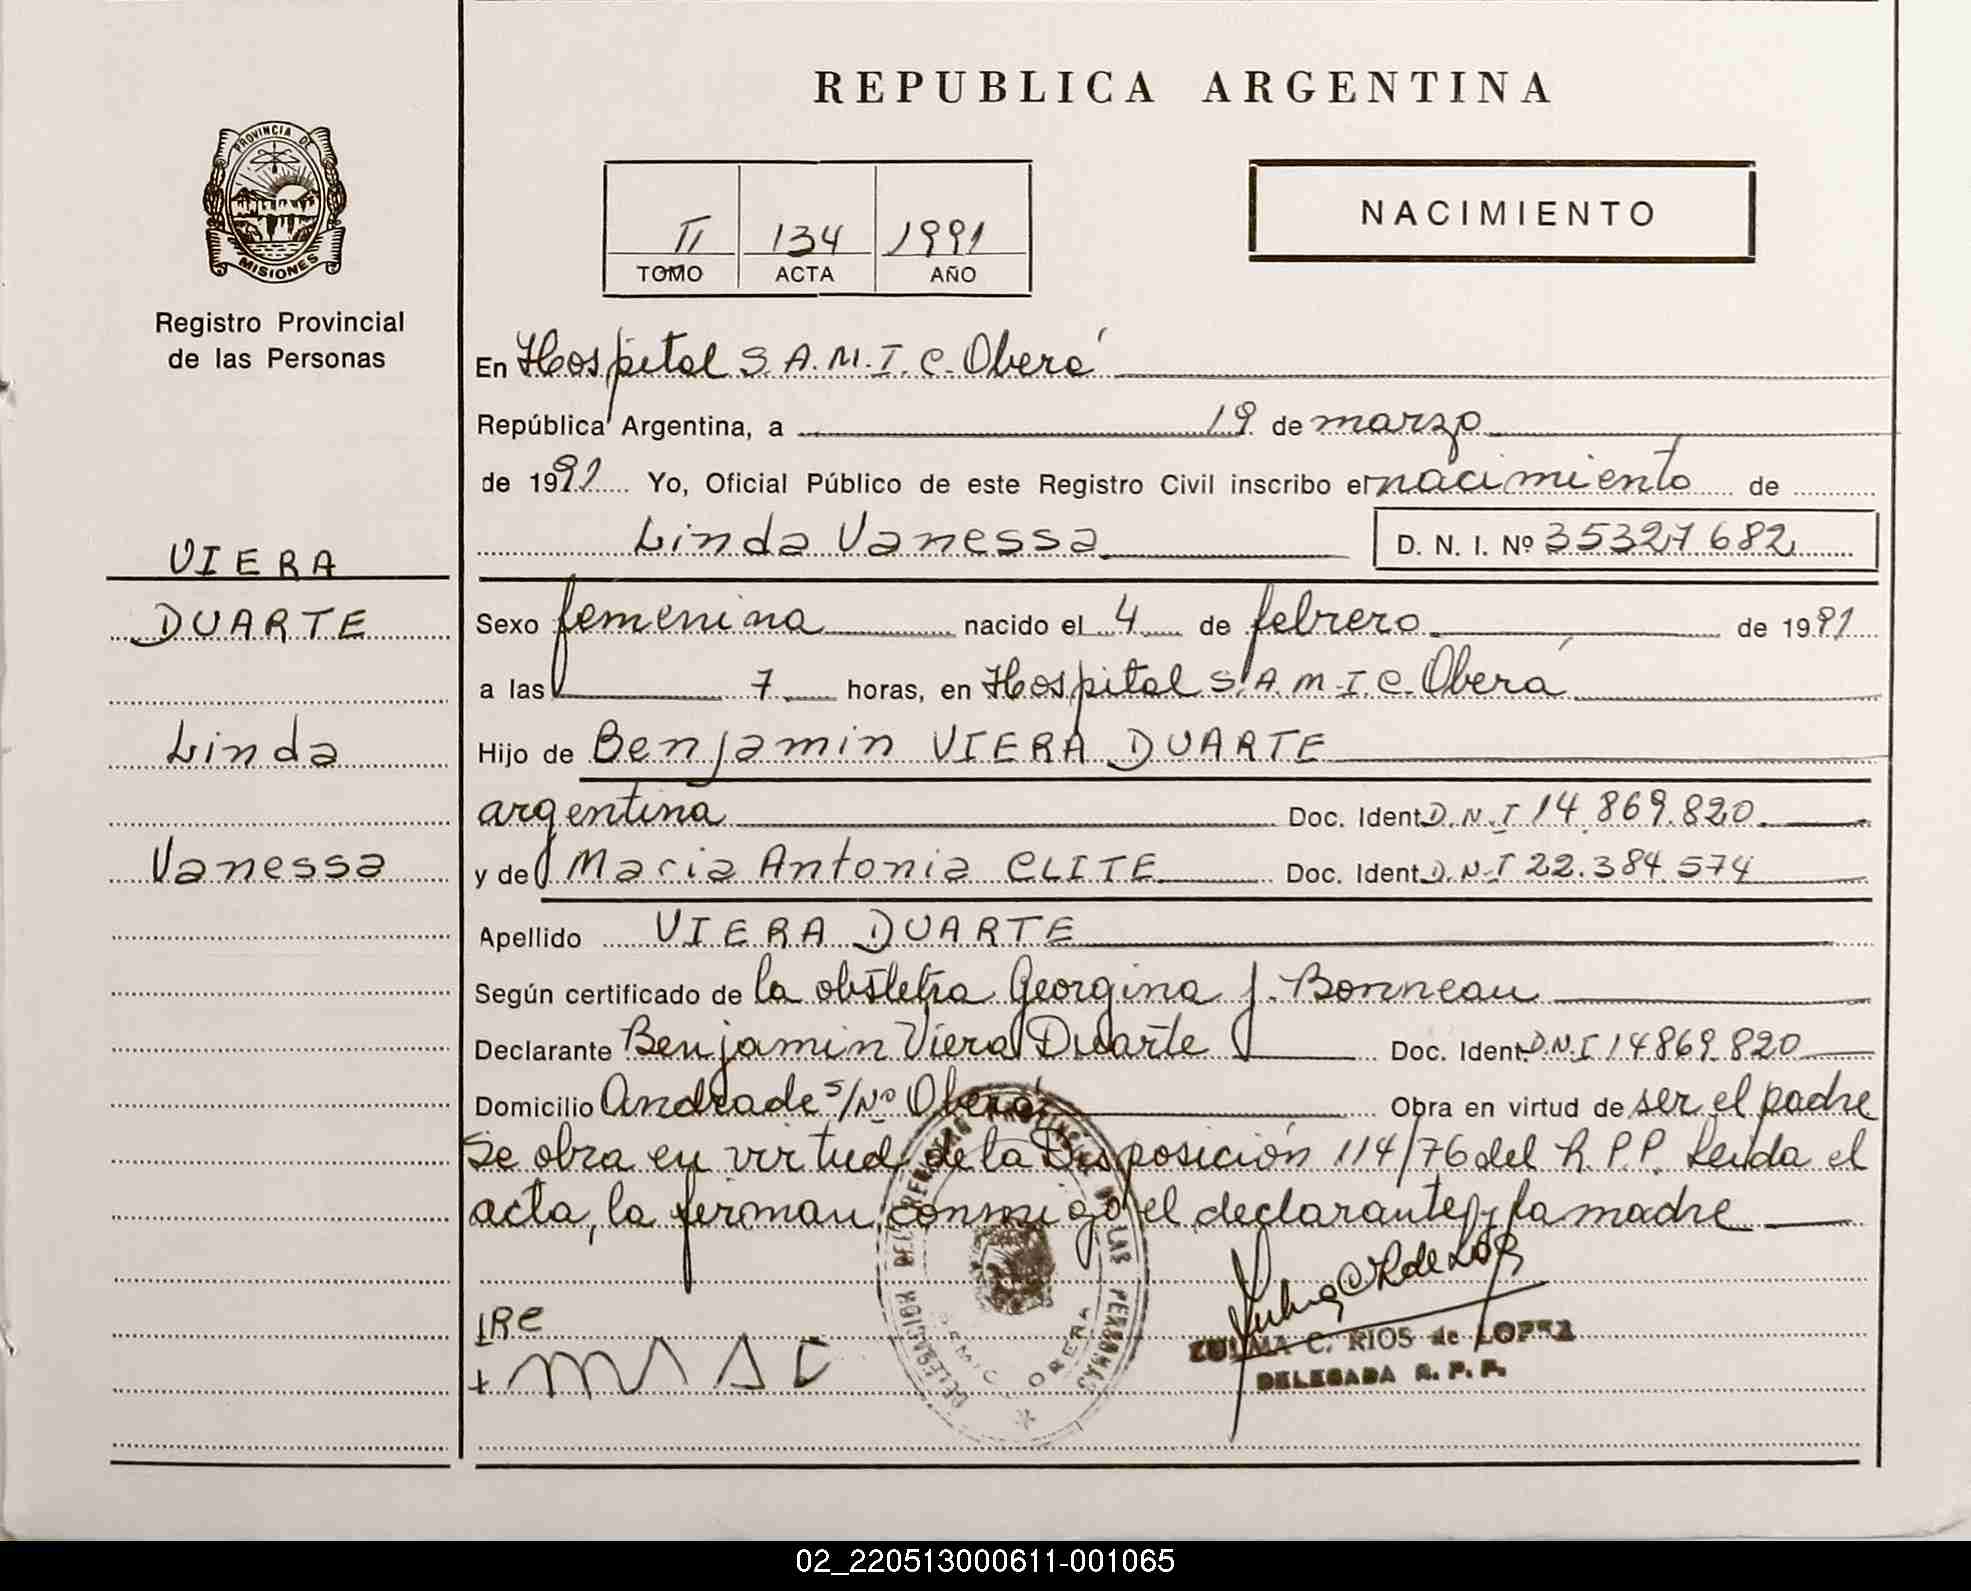 REPUBLICA ARGENTINA
PROVINCIA DE
MISIONES
Registro Provincial
de las Personas
II 134 1991
TOMO ACTA AÑO
NACIMIENTO
En Hospital S.A.M.I.C. Oberá
República Argentina, a 19 de marzo
de 1991 Yo, Oficial Público de este Registro Civil inscribo el nacimiento de
Linda Vanessa D. N. I. Nº 35327682
VIERA
DUARTE
Linda
Vanessa
Sexo femenina nacido el 4 de febrero de 1991
a las 7 horas, en Hospital S.A.M.I.C. Oberá
Hijo de Benjamin VIERA DUARTE
argentina Doc. Ident. D.N.I 14.869.820
y de Maria Antonia CLITE Doc. Ident. D.N.I 22.384.574
Apellido VIERA DUARTE
Según certificado de la obstetra Georgina J. Bonneau
Declarante Benjamin Viera Duarte Doc. Ident. D.N.I 14869.820
Domicilio Andrade s/Nº Oberá Obra en virtud de ser el padre
Se obra en virtud de la Disposición 114/76 del R.P.P. Leida el
acta, la firman conmigo el declarante y la madre
DELEGACION DEL REGISTRO PROVINCIAL DE LAS PERSONAS
OBERA
ZULMA C. RIOS de LOPEZ
DELEGADA R. P. P.
02_220513000611-001065